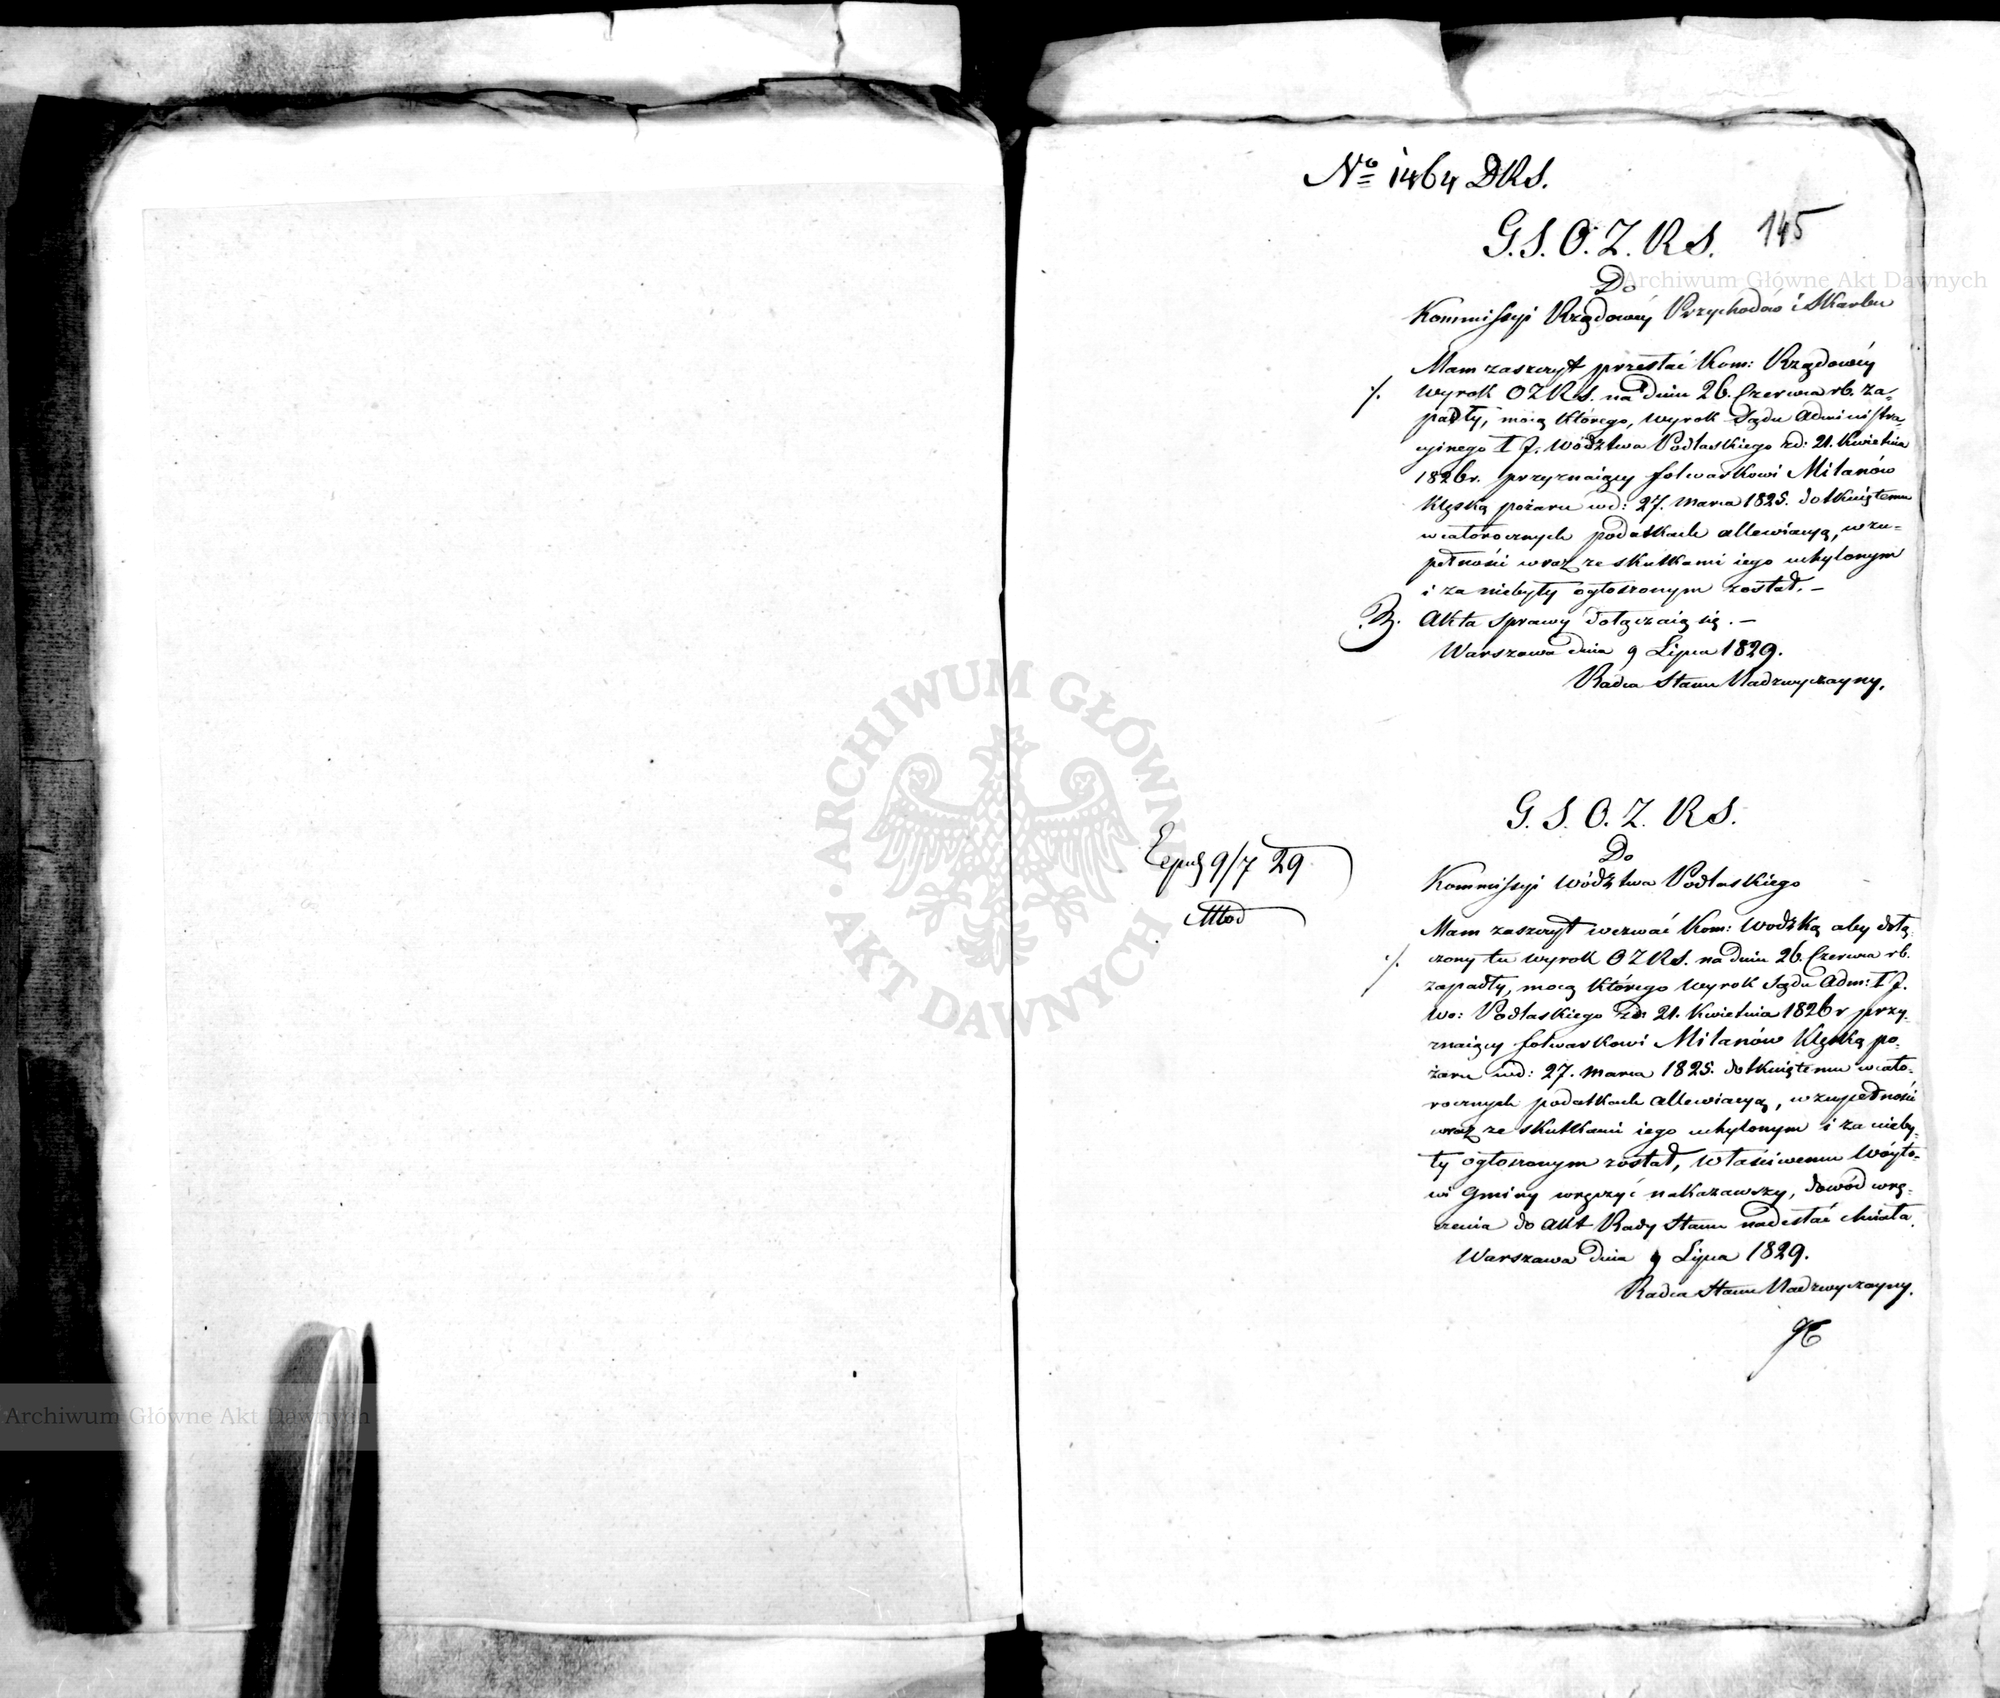 No 1464 DRS.
145
G. S. O. Z. R S.
Do
Kommissyi Rządowéy Przychodów i Skarbu
Mam zaszczyt przesłać Kom: Rządowéy
./. wyrok OZRS. na dniu 26. Czerwca rb. za-
padły, mocą którego, wyrok Sądu Administra-
cyinego I J. Wództwa Podlaskiego zd: 21. Kwietnia
1826 r. przyznaiący folwarkowi Milanów
klęską pożaru wd: 27. Marca 1825. dotkniętemu
w całorocznych podatkach allewiacyą, w zu-
pełności wraz ze skutkami iego uchylonym
i za niebyły ogłoszonym został. –
Akta sprawy dołączaią się. –
Warszawa dnia 9 Lipca 1829.
Radca Stanu Nadzwyczayny.
G. S. O. Z. R S.
Do
Kommissyi Wództwa Podlaskiego
Exped 9/7 29
Mam zaszczyt wezwać Kom: Wodzką aby dołą-
./. czony tu wyrok OZRS. na dniu 26. Czerwca rb.
zapadły, mocą którego wyrok Sądu Adm: I J.
Wo: Podlaskiego zd: 21. Kwietnia 1826 r przy-
znaiący folwarkowi Milanów klęską po-
żaru wd: 27. Marca 1825. dotkniętemu w cało-
rocznych podatkach allewiacyą, w zupełności
wraz ze skutkami iego uchylonym i za nieby-
ły ogłoszonym został, właściwemu Wóyto-
wi Gminy wręczyć nakazawszy, dowód wrę-
czenia do Akt Rady Stanu nadesłać chciała.
Warszawa dnia 9 Lipca 1829.
Radca Stanu Nadzwyczayny.
ARCHIWUM GŁÓWNE AKT DAWNYCH
Archiwum Główne Akt Dawnych
Archiwum Główne Akt Dawnych